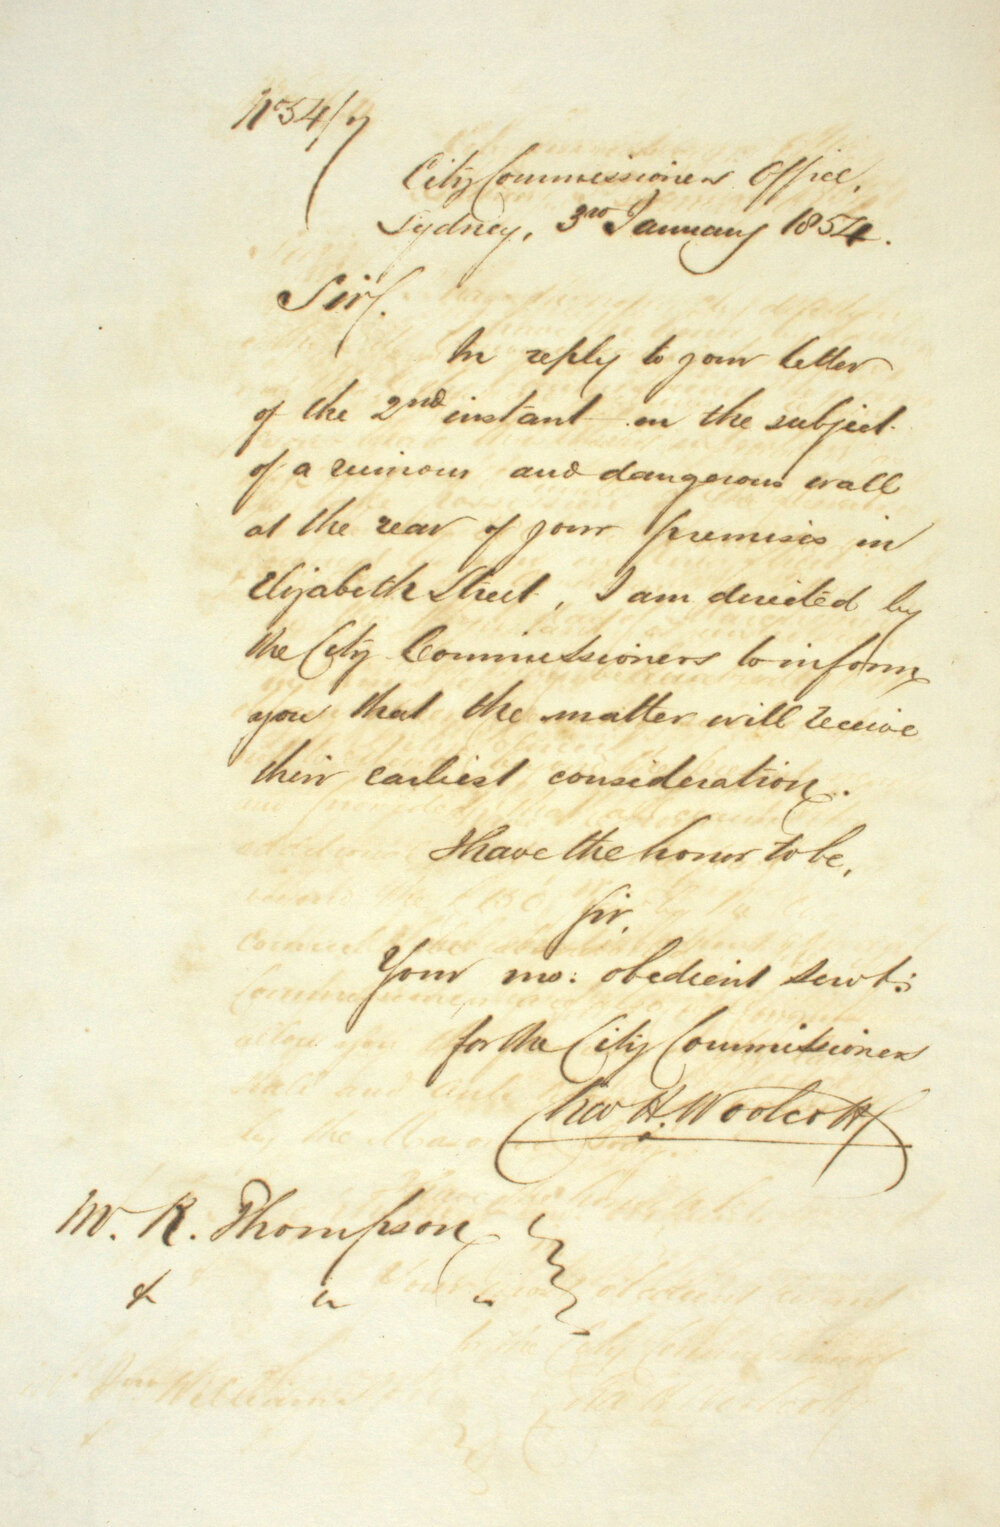 No 54/7
City Commissioners Office,
Sydney, 3rd January 1854.
Sir,
In reply to your letter
of the 2nd instant on the subject
of a ruinous and dangerous wall
at the rear of your premises in
Elizabeth Street, I am directed by
the City Commissioners to inform
you that the matter will receive
their earliest consideration.
I have the honor to be,
Sir,
Your mo: obedient Servt:
for the City Commissioners
Chas H. Woolcott
Mr. R. Thompson